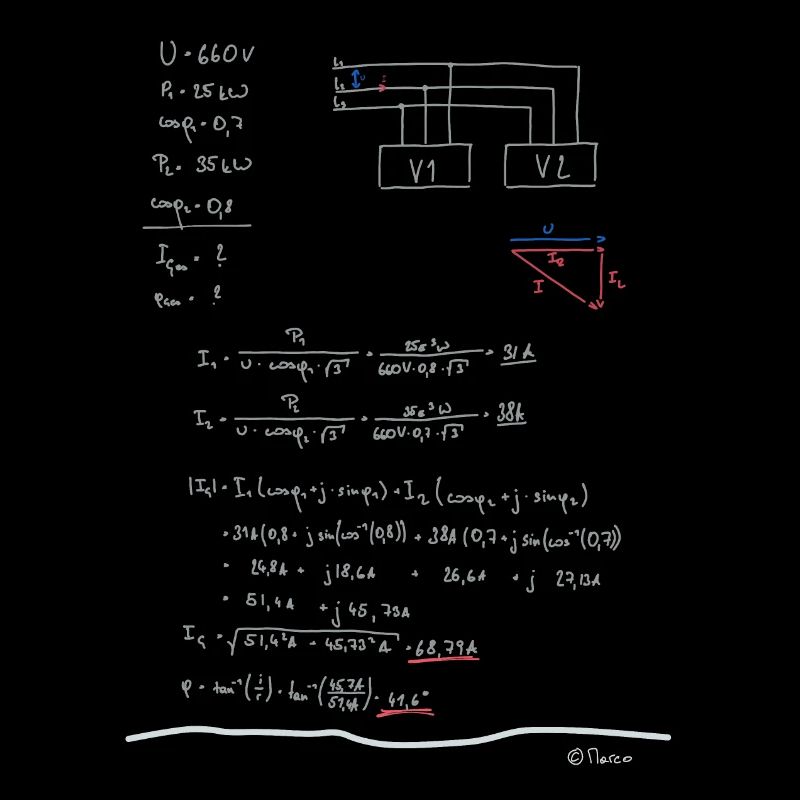 U = 660V
P₁ = 25 kW
cosφ₁ = 0,7
P₂ = 35 kW
cosφ₂ = 0,8
I_Ges = ?
φ_Ges = ?
L₁
U
I
L₂
L₃
V1 V2
U
I_R
I I_L
I₁ = P₁ / (U · cosφ₁ · √3) = 25ε³W / (660V · 0,8 · √3) = 31A
I₂ = P₂ / (U · cosφ₂ · √3) = 35ε³W / (660V · 0,7 · √3) = 38A
|I_G| = I₁ (cosφ₁ + j · sinφ₁) + I₂ (cosφ₂ + j · sinφ₂)
= 31A (0,8 + j sin(cos⁻¹(0,8)) + 38A (0,7 + j sin(cos⁻¹(0,7))
= 24,8A + j18,6A + 26,6A + j 27,13A
= 51,4A + j 45,73A
I_G = √(51,4²A + 45,73²A) = 68,79A
φ = tan⁻¹(j/r) = tan⁻¹(45,7A/51,4A) = 41,6°
© Marco